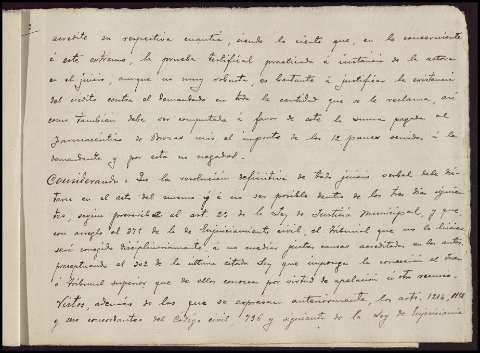 acredite su respectiva cuantía, siendo lo cierto que, en lo concerniente
á este extremo, la prueba testifical practicada á instancia de la actora
en el juicio, aunque no muy robusta, es bastante á justificar la existencia
del crédito contra el demandado en toda la cantidad que se le reclama, así
como tambien debe ser computada á favor de este la suma pagada al
farmacéutico de Brozas más el importe de los 12 panes servidos á la
demandante y por esta no negados.
Considerando: Que la resolución definitiva de todo juicio verbal debe dic-
tarse en el acto del mismo y á no ser posible dentro de los tres días siguien-
tes, segun previene el art. 2º de la Ley de Justicia Municipal, y que
con arreglo al 371 de la de Enjuiciamiento civil, el tribunal que no lo hiciese
será corregido disciplinariamente á no mediar justas causas acreditadas en los autos,
preceptuando el 302 de la última citada Ley que impongan la corrección el Juez
ó tribunal superior que de ellos conozca por virtud de apelación ú otro recurso.
Vistos, además de los que se expresan anteriormente, los arts. 1214,
y sus concordantes del Código civil, 736 y siguientes de la Ley de Enjuiciamia